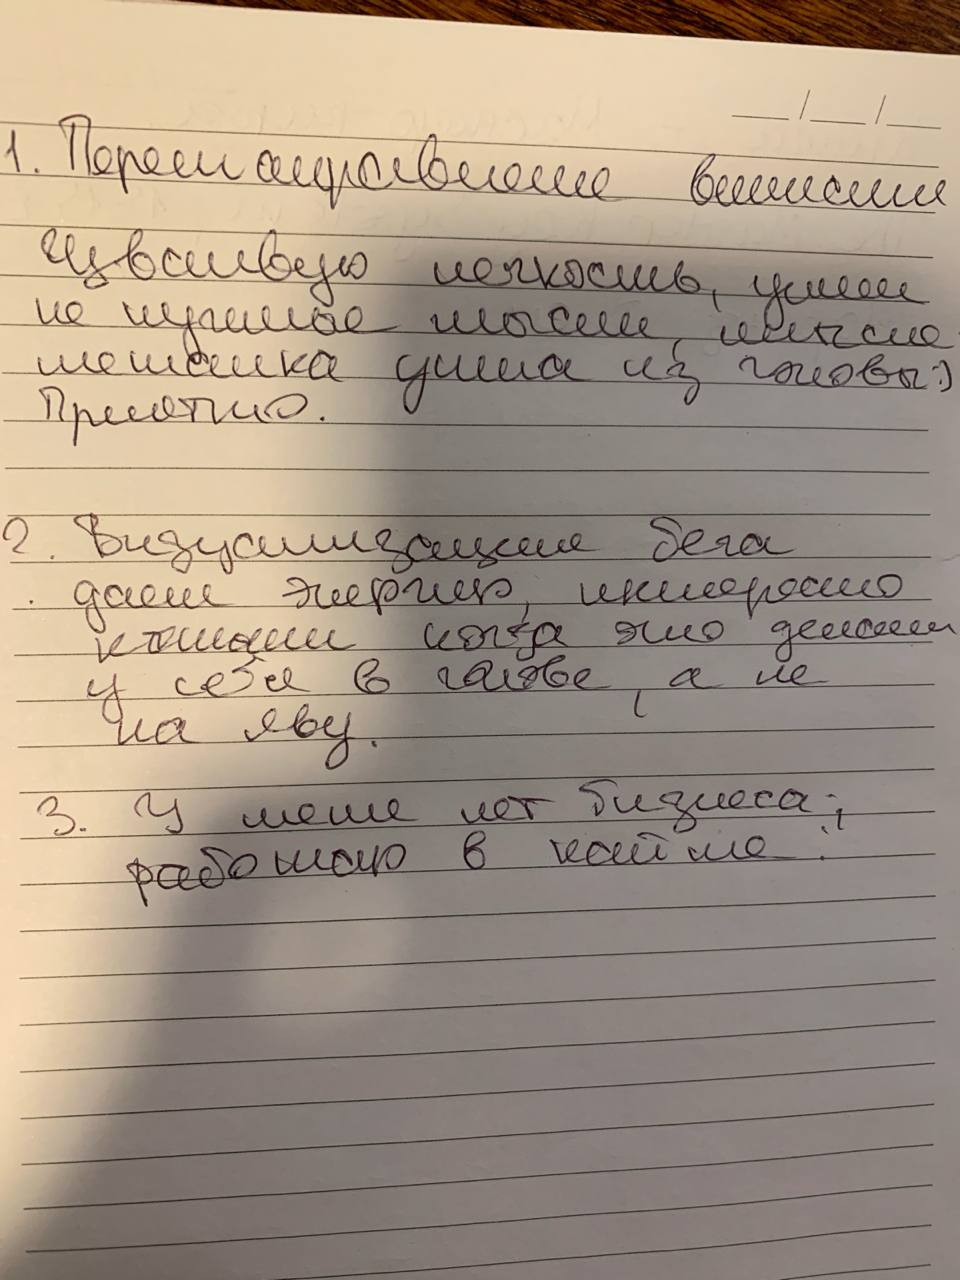 1. Перенаправление внимания
Чувствую легкость, ушли
не нужные мысли,
мешанка ушла из головы:)
Приятно.
2. Визуализация бега
дает энергию, интересно
когда это делаешь
у себя в голове, а не
на яву.
3. У меня нет бизнеса,
работаю в найме